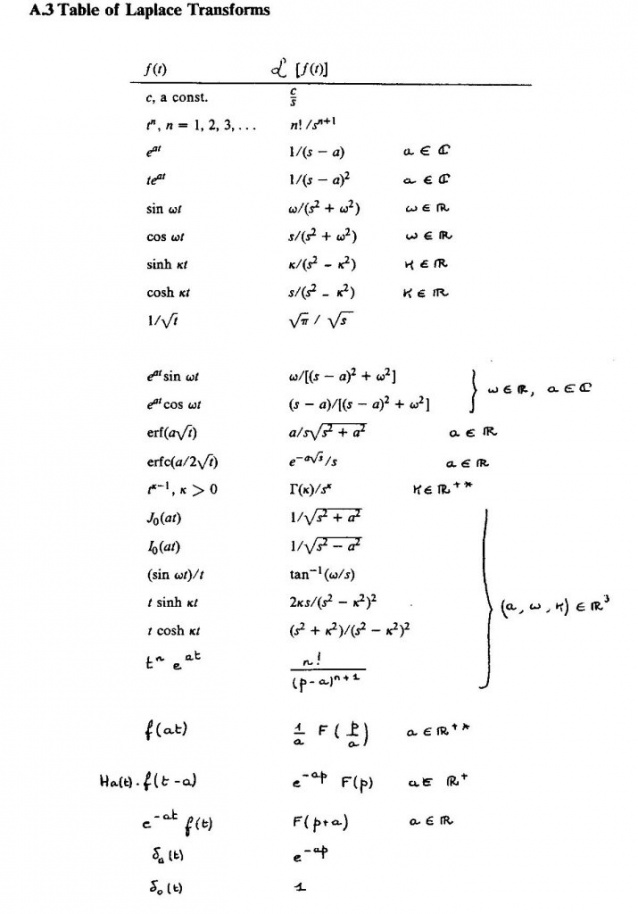 A.3 Table of Laplace Transforms
f(t) ℒ [f(t)]
c, a const. c/s
tⁿ, n = 1, 2, 3,... n!/sⁿ⁺¹
eᵃᵗ 1/(s − a) a ∈ ℂ
teᵃᵗ 1/(s − a)² a ∈ ℂ
sin ωt ω/(s² + ω²) ω ∈ ℝ
cos ωt s/(s² + ω²) ω ∈ ℝ
sinh κt κ/(s² − κ²) κ ∈ ℝ
cosh κt s/(s² − κ²) κ ∈ ℝ
1/√t √π / √s
eᵃᵗ sin ωt ω/[(s − a)² + ω²]
eᵃᵗ cos ωt (s − a)/[(s − a)² + ω²] } ω ∈ ℝ, a ∈ ℂ
erf(a√t) a/s√(s² + a²) a ∈ ℝ
erfc(a/2√t) e^(−a√s)/s a ∈ ℝ
t^(κ−1), κ > 0 Γ(κ)/s^κ κ ∈ ℝ⁺*
J₀(at) 1/√(s² + a²)
I₀(at) 1/√(s² − a²)
(sin ωt)/t tan⁻¹(ω/s)
t sinh κt 2κs/(s² − κ²)² } (a, ω, κ) ∈ ℝ³
t cosh κt (s² + κ²)/(s² − κ²)²
tⁿ eᵃᵗ n!/(p−a)ⁿ⁺¹
f(at) 1/a F(p/a) a ∈ ℝ⁺*
Ha(t). f(t−a) e^(−ap) F(p) a ∈ ℝ⁺
e^(−at) f(t) F(p+a) a ∈ ℝ
δₐ(t) e^(−ap)
δ₀(t) 1